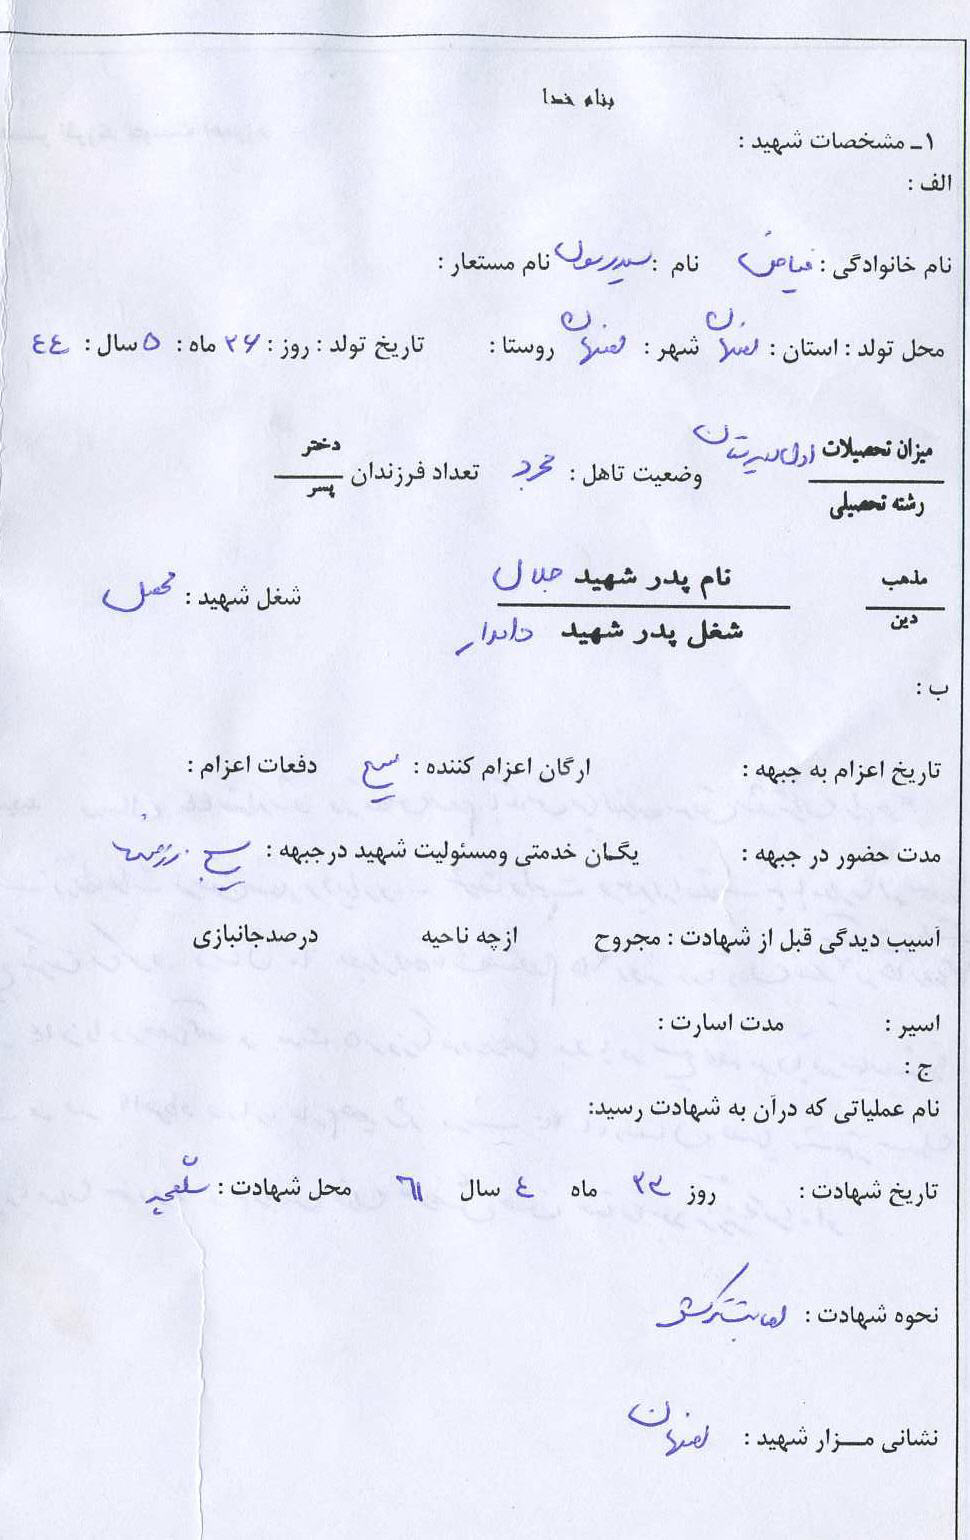 بنام خدا
۱ـ مشخصات شهید :
الف :
نام خانوادگی : فیاض نام : سیدرسول نام مستعار :
محل تولد : استان : اصفهان شهر : اصفهان روستا : تاریخ تولد : روز : ۲۶ ماه : ۵ سال : ٤٤
میزان تحصیلات اول دبیرستان وضعیت تاهل : مجرد تعداد فرزندان دختر
رشته تحصیلی پسر
مذهب نام پدر شهید جلال شغل شهید : محصل
دین شغل پدر شهید
ب :
تاریخ اعزام به جبهه : ارگان اعزام کننده : بسیج دفعات اعزام :
مدت حضور در جبهه : یگان خدمتی ومسئولیت شهید درجبهه : بسیج رزمنده
آسیب دیدگی قبل از شهادت : مجروح ازچه ناحیه درصدجانبازی
اسیر : مدت اسارت :
ج :
نام عملیاتی که درآن به شهادت رسید:
تاریخ شهادت : روز ۲۳ ماه ٤ سال ٦١ محل شهادت : شلمچه
نحوه شهادت : اصابت ترکش
نشانی مـــزار شهید : اصفهان